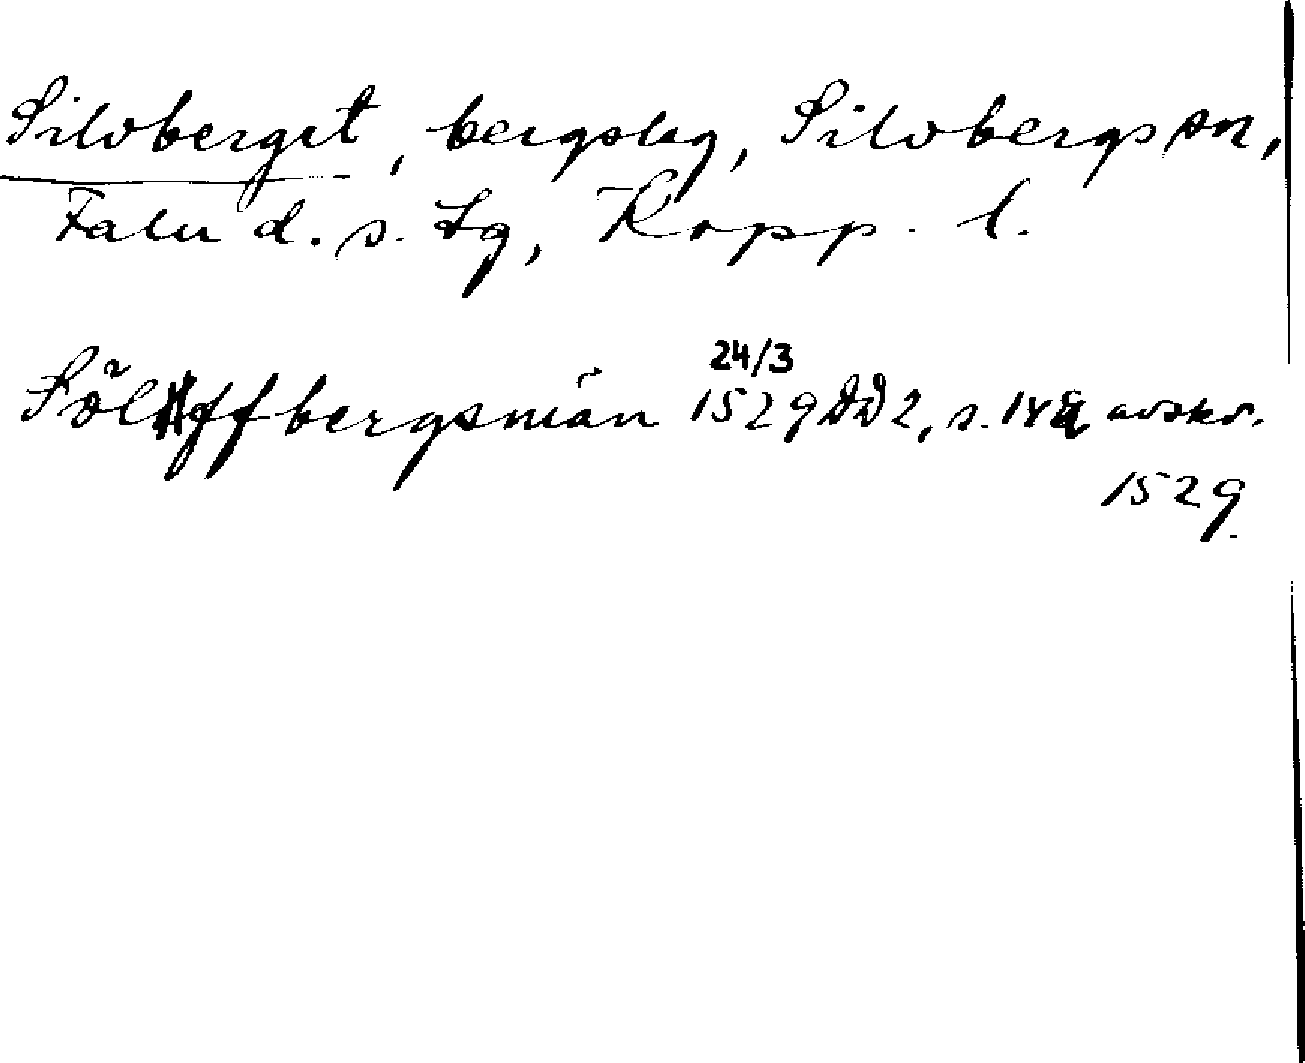 Silvberget, bergslag, Silvbergs sn,
Falu d. s. tg, Kopp. l.
24/3
Sölffbergsmän 1529 DD 2, s. avskr.
1529.